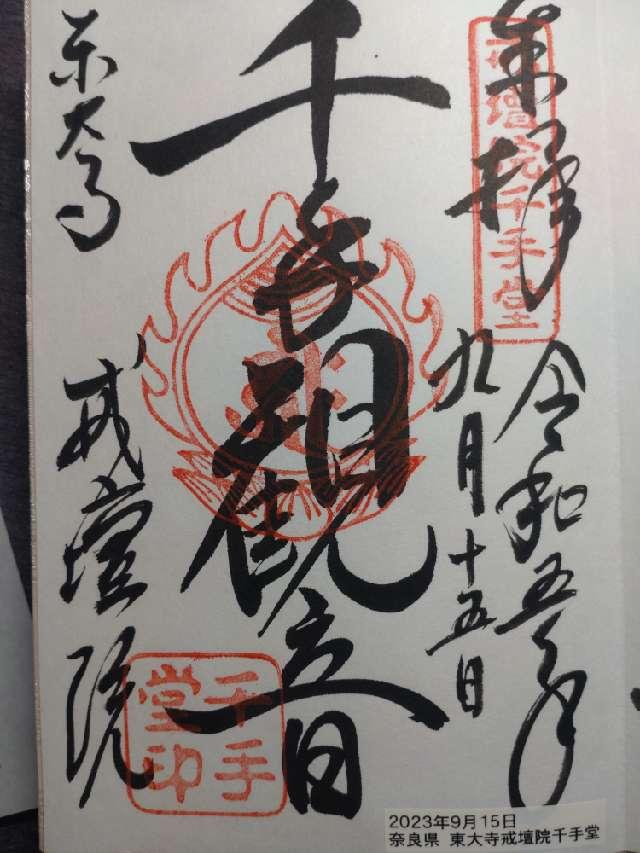 奉拝
戒壇院千手堂
令和五年
九月十五日
千手観音
東大寺
戒壇院
千手
堂印
2023年9月15日
奈良県 東大寺戒壇院千手堂